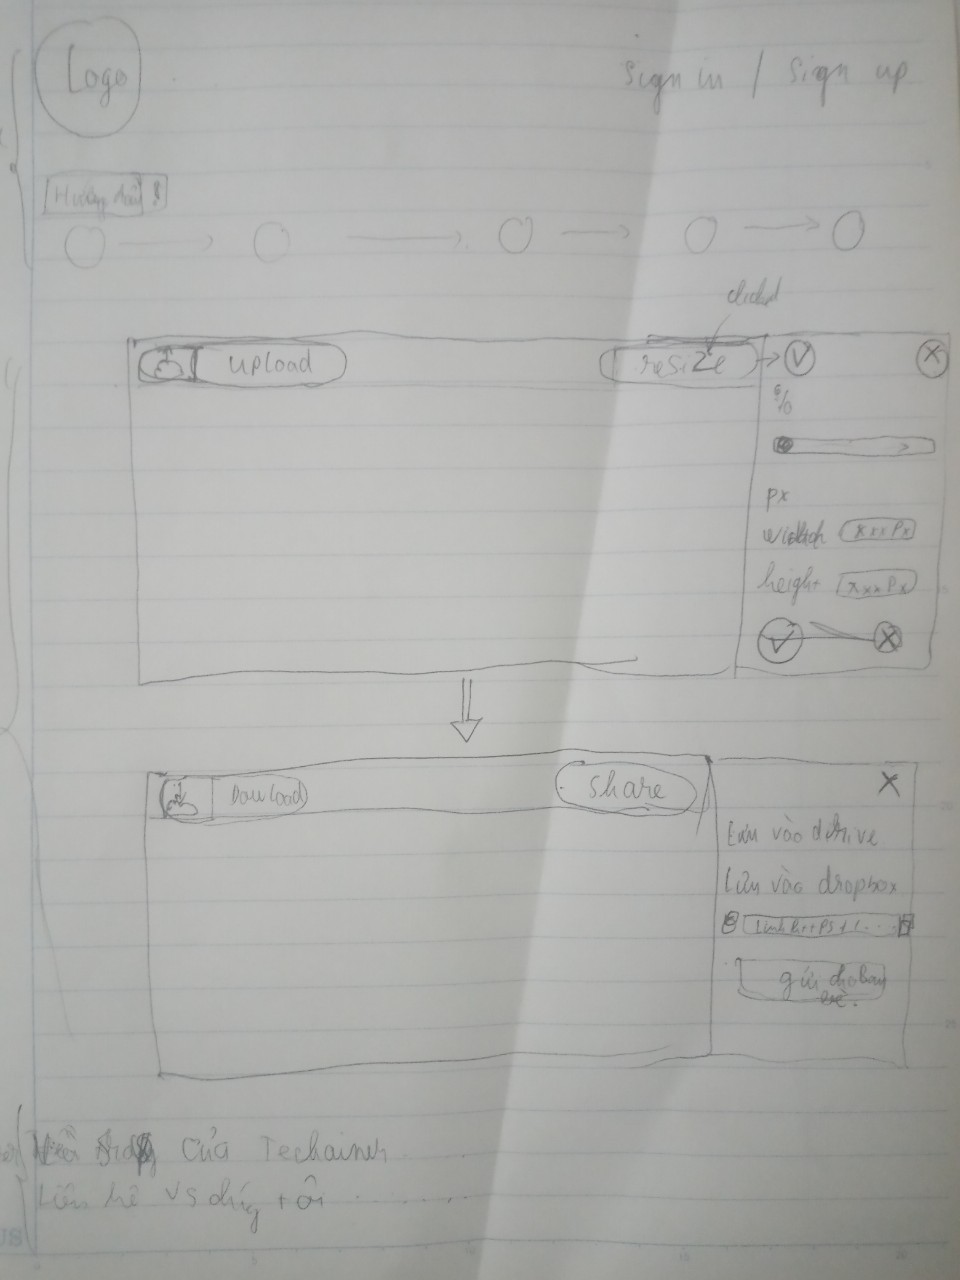 Logo
Sign in / Sign up
Hướng dẫn !
clicked
upload
resize
%
px
width xxx Px
height xxx Px
Download
share
X
Lưu vào drive
Lưu vào dropbox
Link
gửi cho bạn
của Techainer
Liên hệ vs chúng tôi